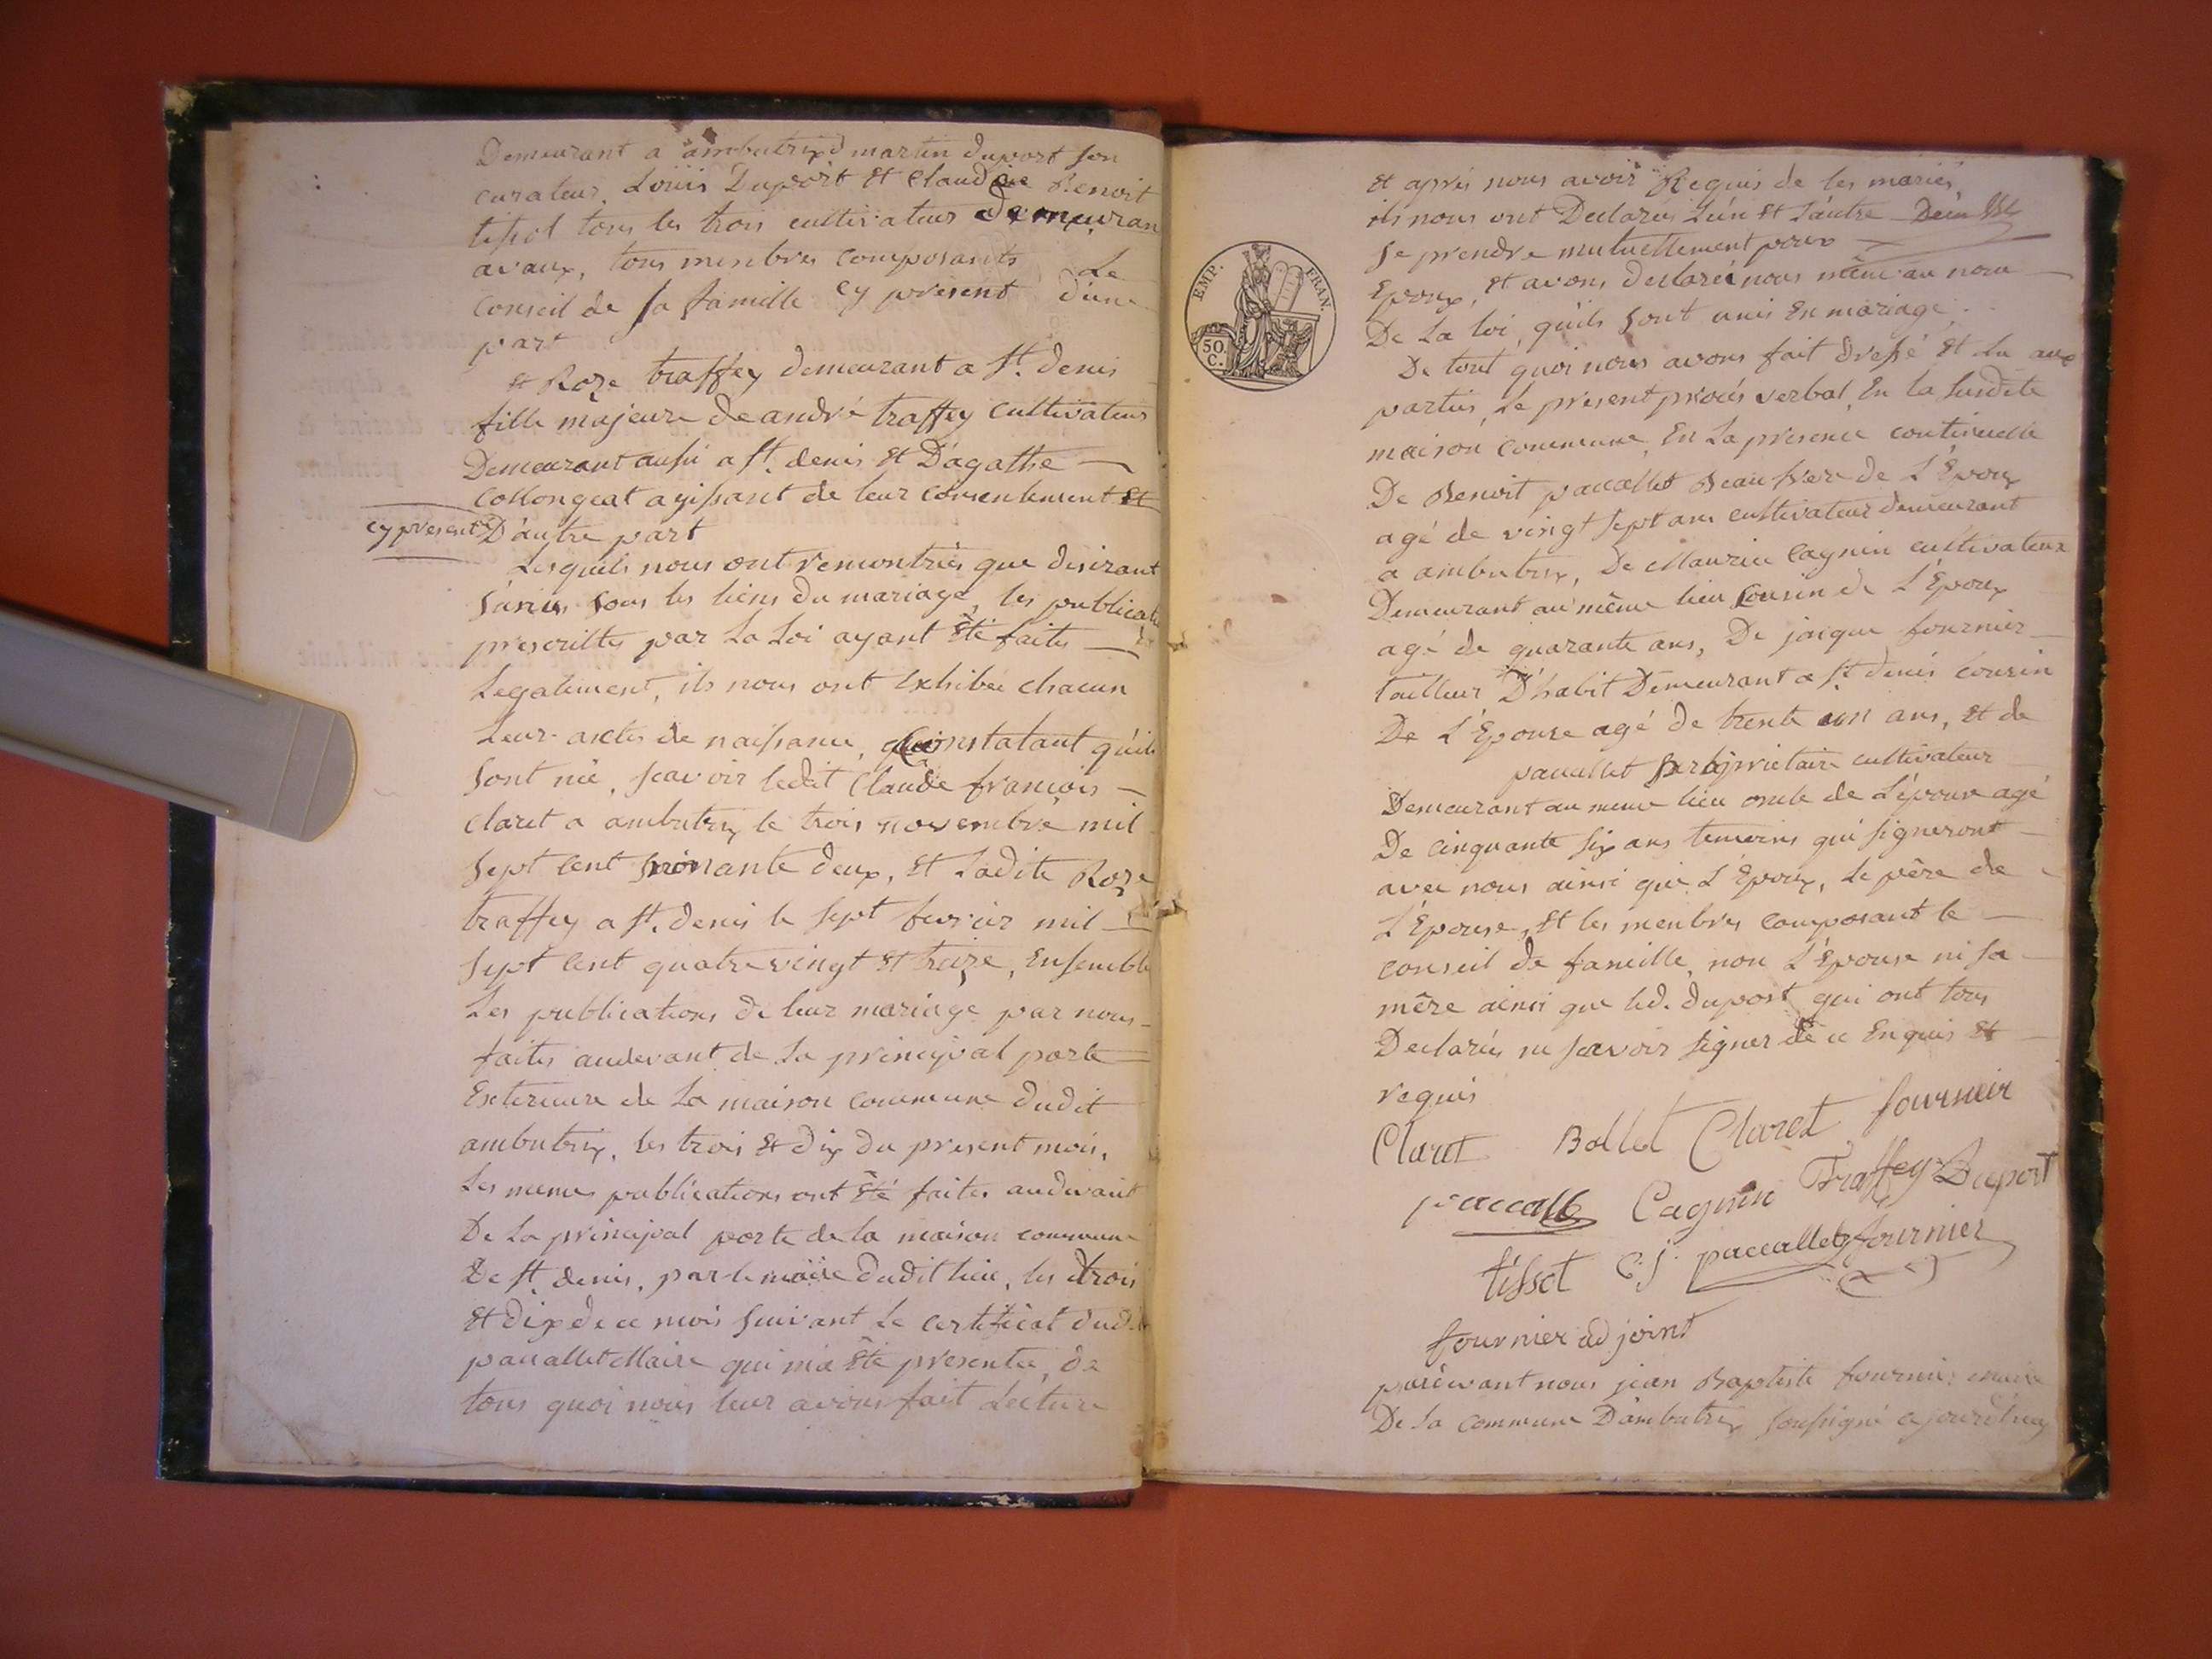 Demeurant a ambutrix martin duport son
curateur, Louis Duport Et Claude Benoit
tissot tous les trois cultivateurs demeuran
avaux, tous membres composants Le
Conseil de sa famille cy présent d'une
part
Et Roze traffey demeurant a St. denis
fille majeure de andré traffey cultivateur
Demeurant aussi a St. denis Et D'agathe
Collongeat agissant de leur consentement Et
cy present D'autre part
Lesquels nous ont remontrés que desirant
s'unir sous les liens du mariage, les publicati
prescrittes par La Loi ayant Eté faites
Legalement, ils nous ont Exhibée chacun
Leur actes de naissance, Constatant qu'ils
sont née, scavoir ledit Claude françois
claret a ambutrix le trois novembre mil
sept cent nonante deux, Et Ladite Roze
traffey a St. denis le sept fevrier mil
sept cent quatre vingt Et treize, Ensemble
Les publications de leur mariage par nous
faites audevant de La principal porte
Exterieure de La maison commune dudit
ambutrix, les trois Et dix du present mois,
Les memes publications ont Eté faites audevant
De La principal porte de la maison commune
De St. denis, par le maire dudit lieu, les trois
Et dix de ce mois suivant Le certificat dudit
paccallet Maire qui m'a Eté presentée, de
tous quoi nous leur avons fait Lecture
EMP. FRAN.
50 C.
Et aprés nous avoir Requis de les mariés,
ils nous ont Declarés L'un Et L'autre
se prendre mutuellement pour
Epoux, Et avons declaré nous même au nom
De La loi, qu'ils sont unis En mariage,
De tout quoi nous avons fait dressé Et lu aux
parties, Le present procés verbal, En la susdite
maison commune, En La presence continuelle
De Benoit paccallet Beau frere de L'Epoux
agé de vingt sept ans cultivateur demeurant
a ambutrix, De Maurice Cagnin cultivateur
Demeurant au même lieu Cousin de L'Epoux
agé de quarante ans, De jacque fournier
tailleur D'habit Demeurant a St. denis cousin
De L'Epouse agé de trente un ans, Et de
paccallet propriétaire cultivateur
Demeurant au meme lieu oncle de L'épouse agé
De cinquante six ans temoins qui signeront
avec nous ainsi que L'Epoux, Le père de
L'Epouse, Et les membres composant le
conseil de famille, non L'Epouse ni sa
mère ainsi que led. duport qui ont tous
Declarés ne scavoir signer de ce Enquis Et
requis
Claret Bollet Claret fournier
paccalle Cagnin Traffey Duport
tissot C.J. paccallet fournier
fournier adjoint
pardevant nous jean Baptiste fournier maire
De La commune D'ambutrix soussigné cejourd'huy